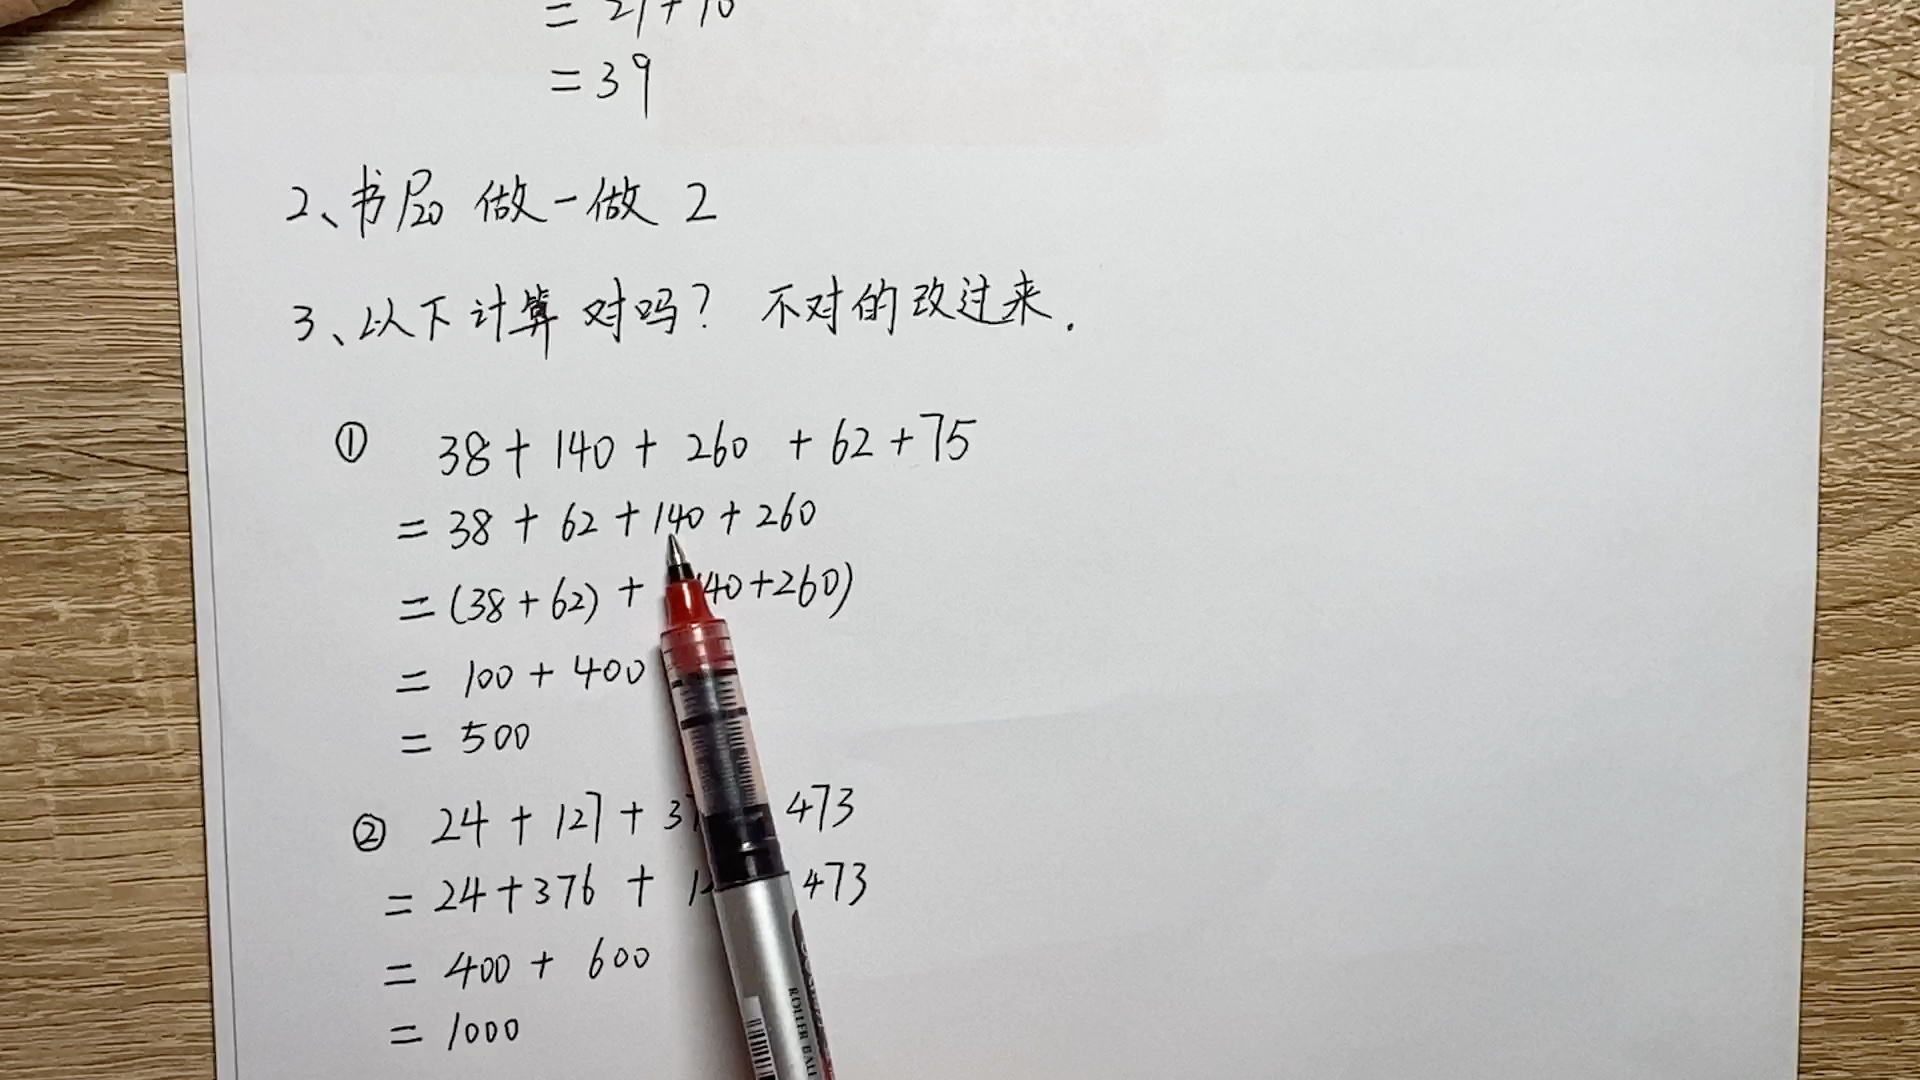 = 39
2、书P20 做一做 2
3、以下计算对吗? 不对的改过来.
① 38 + 140 + 260 + 62 + 75
= 38 + 62 + 140 + 260
= (38 + 62) + 40 + 260)
= 100 + 400
= 500
② 24 + 127 + 37 473
= 24 + 376 + 1 473
= 400 + 600
= 1000
ROLLER BALL